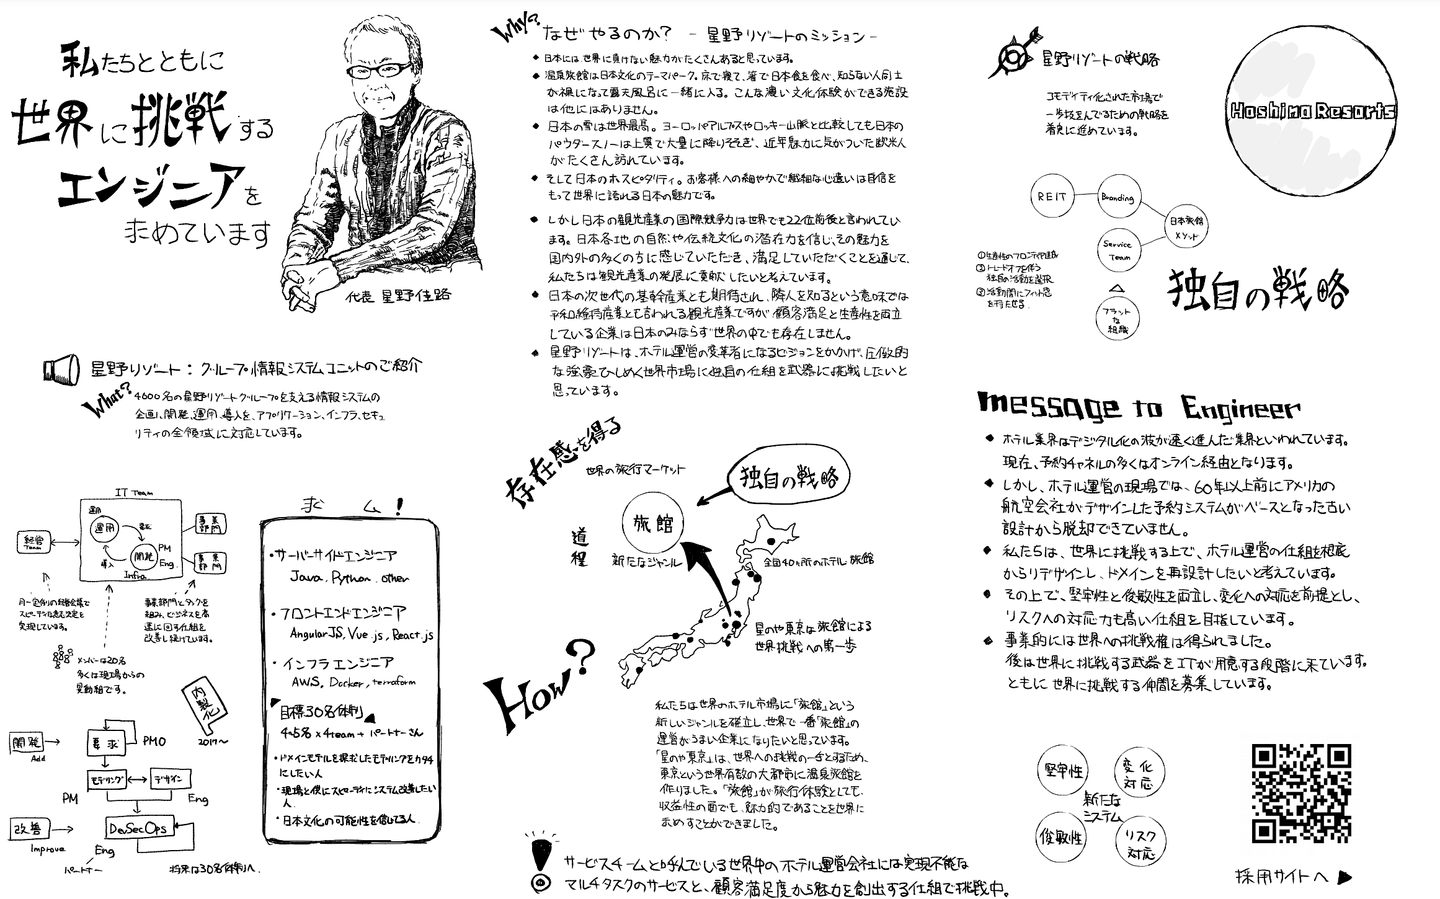 私たちとともに
世界に挑戦する
エンジニアを
求めています
代表 星野佳路
星野リゾート：グループ情報システムユニットのご紹介
What?
4600名の星野リゾートグループを支える情報システムの
企画、開発、運用、導入を、アプリケーション、インフラ、セキュ
リティの全領域に対応しています。
IT Team
経営
Team
運用
開発
導入
PM
Eng.
Infra
事業
部門
事業
部門
事業部門とタッグを
組み、ビジネスを高
速に回す仕組を
改善し続けています。
実現しています。
メンバーは20名
多くは現場からの
異動組です。
内製化
2017〜
開発
Add
要求
PMO
モデリング
デザイン
PM
Eng
改善
Improve
DevSecOps
Eng
パートナー
将来は30名体制へ
求ム！
・サーバーサイドエンジニア
Java, Python, other
・フロントエンドエンジニア
AngularJS, Vue.js, React.js
・インフラエンジニア
AWS, Docker, terraform
目標30名体制
4~5名 x 4team + パートナーさん
・ドメインモデルを探求したモデリングをカタチ
にしたい人
・現場と供にスピーディにシステム改善したい
人
・日本文化の可能性を信じてる人
Why?
なぜやるのか？ - 星野リゾートのミッション -
◆ 日本には世界に負けない魅力がたくさんあると思っています。
◆ 温泉旅館は日本文化のテーマパーク。床で寝て、箸で日本食を食べ、知らない人同士
が裸になって露天風呂に一緒に入る。こんな凄い文化体験ができる施設
は他にはありません。
◆ 日本の雪は世界最高。ヨーロッパアルプスやロッキー山脈と比較しても日本の
パウダースノーは上質で大量に降りそそぎ、近年魅力に気がついた欧米人
がたくさん訪れています。
◆ そして日本のホスピタリティ。お客様への細やかで繊細な心遣いは自信を
もって世界に誇れる日本の魅力です。
◆ しかし日本の観光産業の国際競争力は世界でも22位前後と言われてい
ます。日本各地の自然や伝統文化の潜在力を信じ、その魅力を
国内外の多くの方に感じていただき、満足していただくことを通じて、
私たちは観光産業の発展に貢献したいと考えています。
◆ 日本の次世代の基幹産業とも期待され、隣人を知るという意味では
平和維持産業とも言われる観光産業ですが顧客満足と生産性を両立
している企業は日本のみならず世界の中でも存在しません。
◆ 星野リゾートは、ホテル運営の変革者になるビジョンをかかげ、圧倒的
な強豪ひしめく世界市場に独自の仕組を武器に挑戦したいと
思っています。
存在感を得る
世界の旅行マーケット
旅館
新たなジャンル
独自の戦略
道程
全国40ヶ所のホテル旅館
星のや東京は旅館による
世界挑戦への第一歩
How?
私たちは世界のホテル市場に「旅館」という
新しいジャンルを確立し、世界で一番「旅館」の
運営がうまい企業になりたいと思っています。
「星のや東京」は、世界への挑戦の一歩とするため、
東京という世界有数の大都市に温泉旅館を
作りました。「旅館」が旅行体験としても、
収益性の面でも、魅力的であることを世界に
示すことができました。
サービスチームと呼んでいる世界中のホテル運営会社には実現不能な
マルチタスクのサービスと、顧客満足度から魅力を創出する仕組で挑戦中。
星野リゾートの戦略
コモディティ化された市場で
一歩抜きんでるための戦略を
着実に進めています。
Hoshino Resorts
REIT
Branding
日本旅館
メソッド
Service
Team
フラット
な
組織
①生産性のフロンティア達成
②トレードオフを伴う
独自の活動を選択
③活動間にフィット感
を持たせる
独自の戦略
message to Engineer
◆ ホテル業界はデジタル化の波が速く進んだ業界といわれています。
現在、予約チャネルの多くはオンライン経由となります。
◆ しかし、ホテル運営の現場では、60年以上前にアメリカの
航空会社がデザインした予約システムがベースとなった古い
設計から脱却できていません。
◆ 私たちは、世界に挑戦する上で、ホテル運営の仕組を根底
からリデザインし、ドメインを再設計したいと考えています。
◆ その上で、堅牢性と俊敏性を両立し、変化への対応を前提とし、
リスクへの対応力も高い仕組を目指しています。
◆ 事業的には世界への挑戦権は得られました。
後は世界に挑戦する武器をITが用意する段階に来ています。
ともに世界に挑戦する仲間を募集しています。
堅牢性
変化
対応
新たな
システム
俊敏性
リスク
対応
採用サイトへ ▶